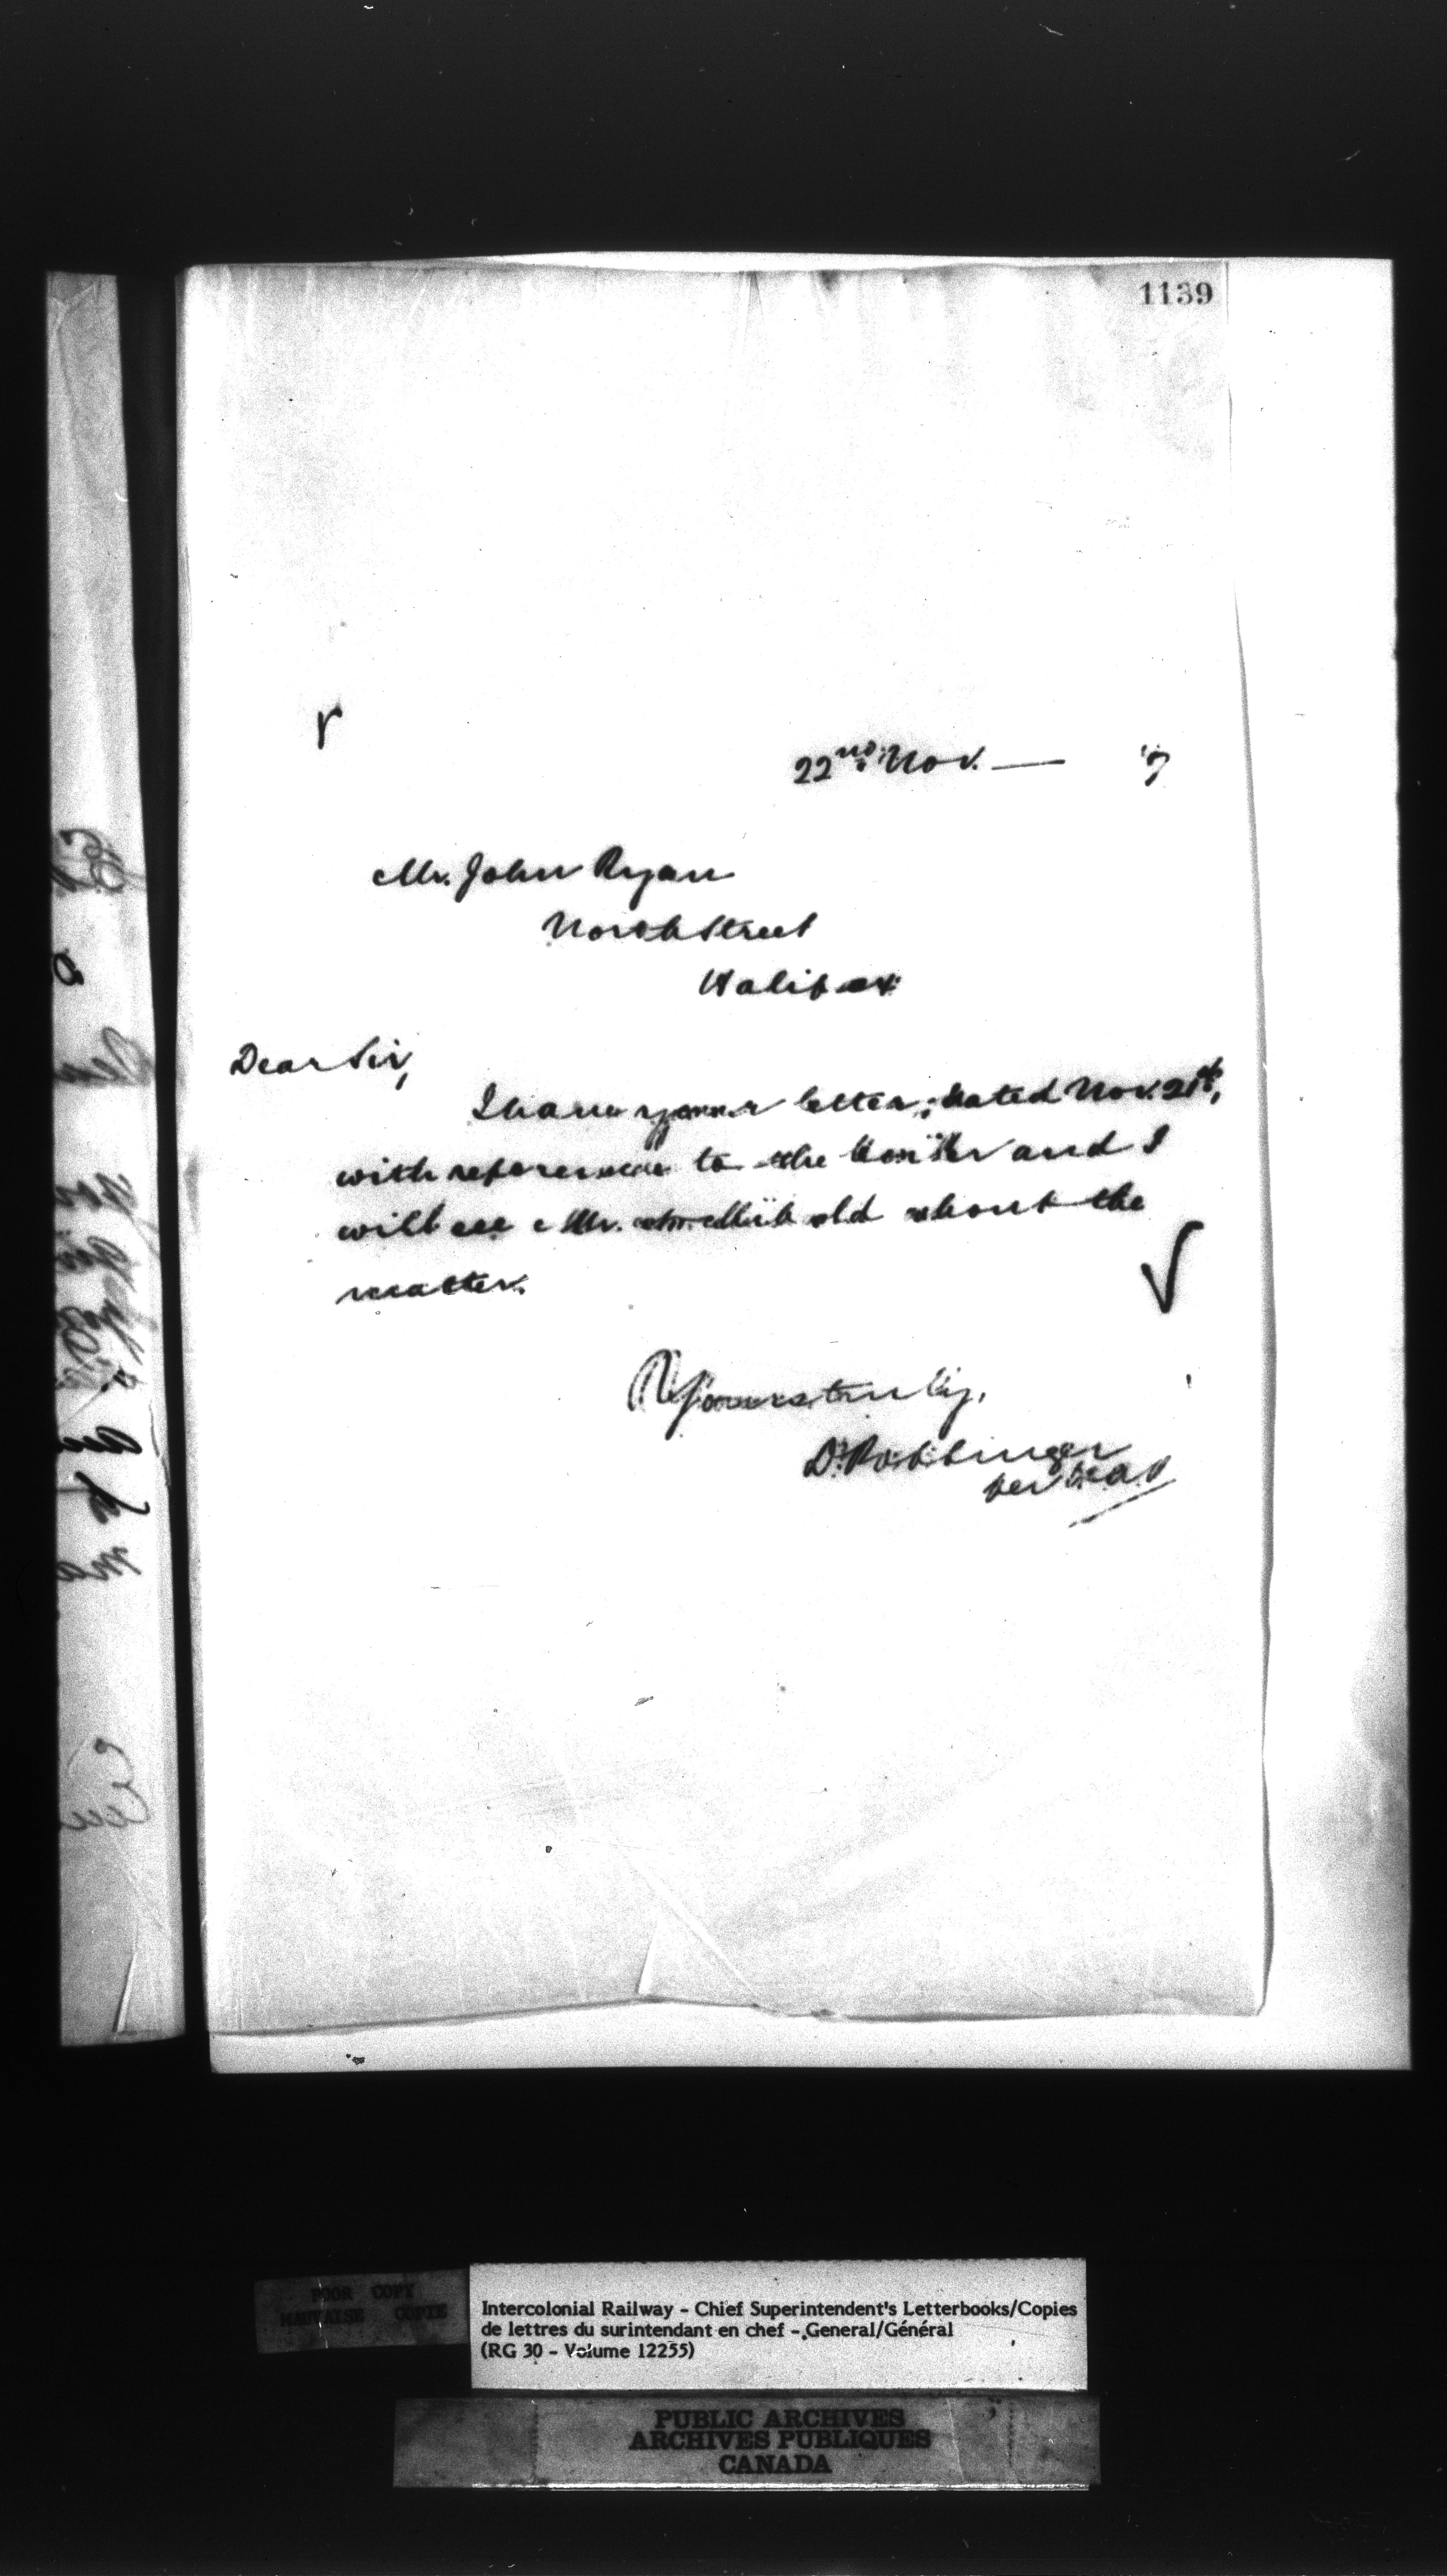 1139
22nd Nov. — '7
Mr. John Ryan
North Street
Halifax
Dear Sir,
I have your letter, dated Nov. 21st,
with reference to the and I
will see Mr. about the
matter.
Yours truly,
D. Pottinger
per
POOR COPY
MAUVAISE COPIE
Intercolonial Railway - Chief Superintendent's Letterbooks/Copies
de lettres du surintendant en chef - General/Général
(RG 30 - Volume 12255)
PUBLIC ARCHIVES
ARCHIVES PUBLIQUES
CANADA